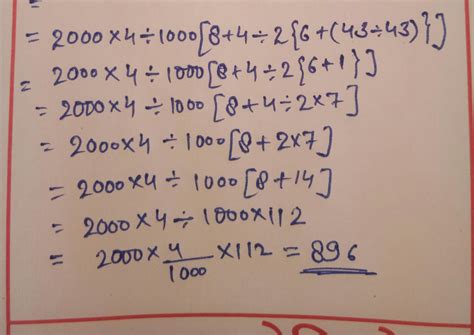 = 2000×4÷1000[8+4÷2{6+(43÷43)}]
= 2000×4÷1000[8+4÷2{6+1}]
= 2000×4÷1000[8+4÷2×7]
= 2000×4÷1000[8+2×7]
= 2000×4÷1000[8+14]
= 2000×4÷1000×112
= 2000×4/1000×112 = 896